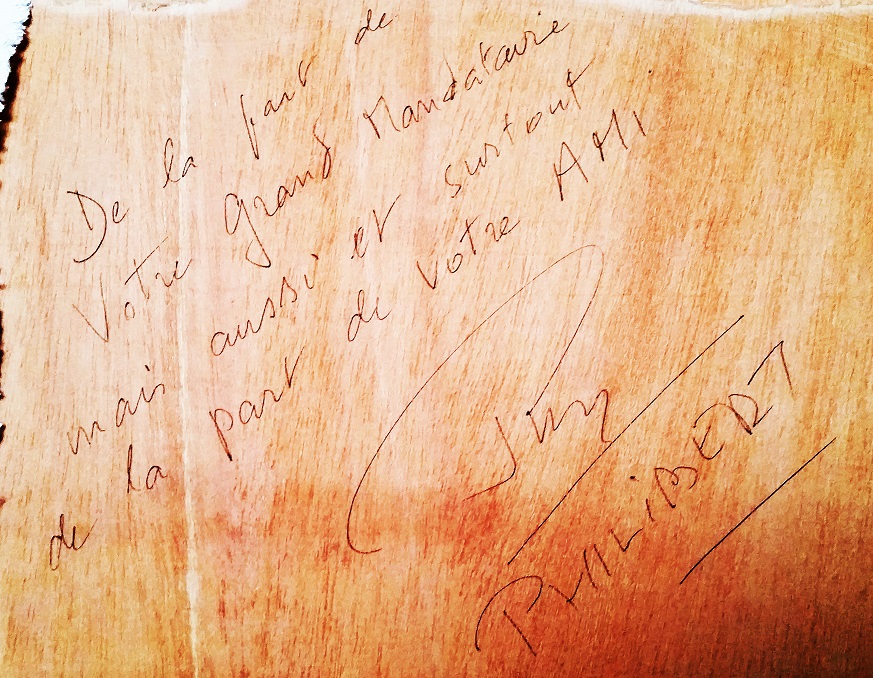 De la part de
Votre Grand Mandataire
mais aussi et surtout
de la part de votre AMI
PHILIBERT